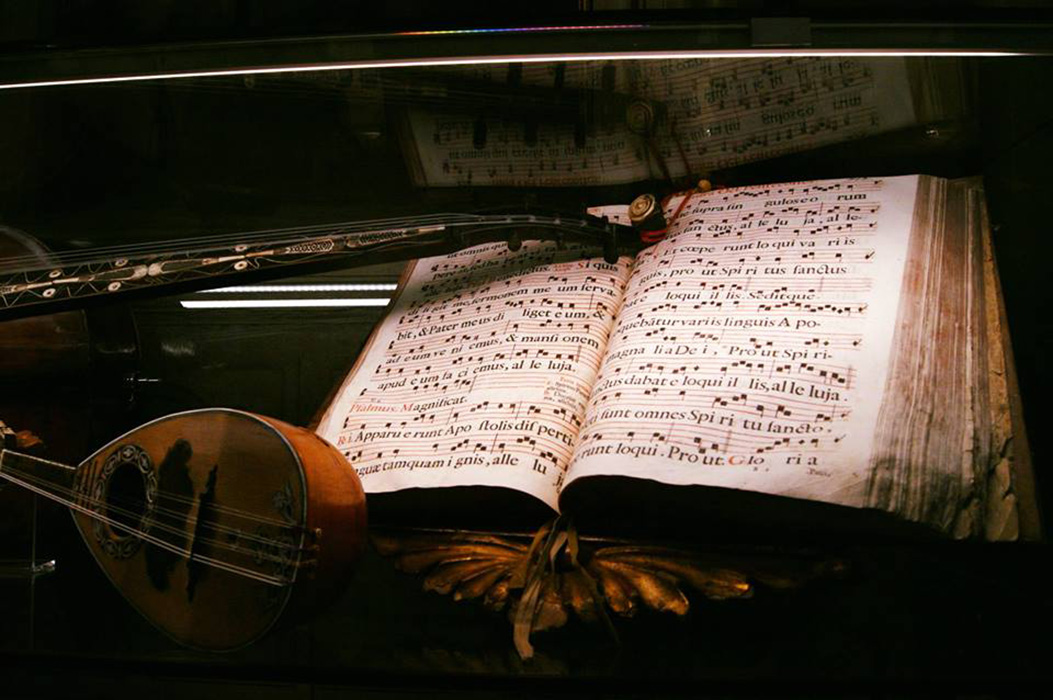 ut omnis qu
SI quis
di li git me, sermonem me um serva-
bit, & Pater meus di liget e um, &
ad e um ve ni emus, & mansi onem
apud e um fa ci emus, al le luja.
Psalmus. Magnificat.
Apparu e runt Apo stolis disperti-
guæ tamquam i gnis, alle lu
supra sin gulos e o rum
al le lu ja, al le-
Et cœpe runt lo qui va ri is
guis, pro ut Spi ri tus sanctus
loqui il lis. Seditque
quebātur variis linguis A po-
magna lia De i, Pro ut Spi ri-
ctus dabat e loqui il lis, al le luja.
sunt omnes Spi ri tu sancto.
runt loqui. Pro ut. Glo ri a